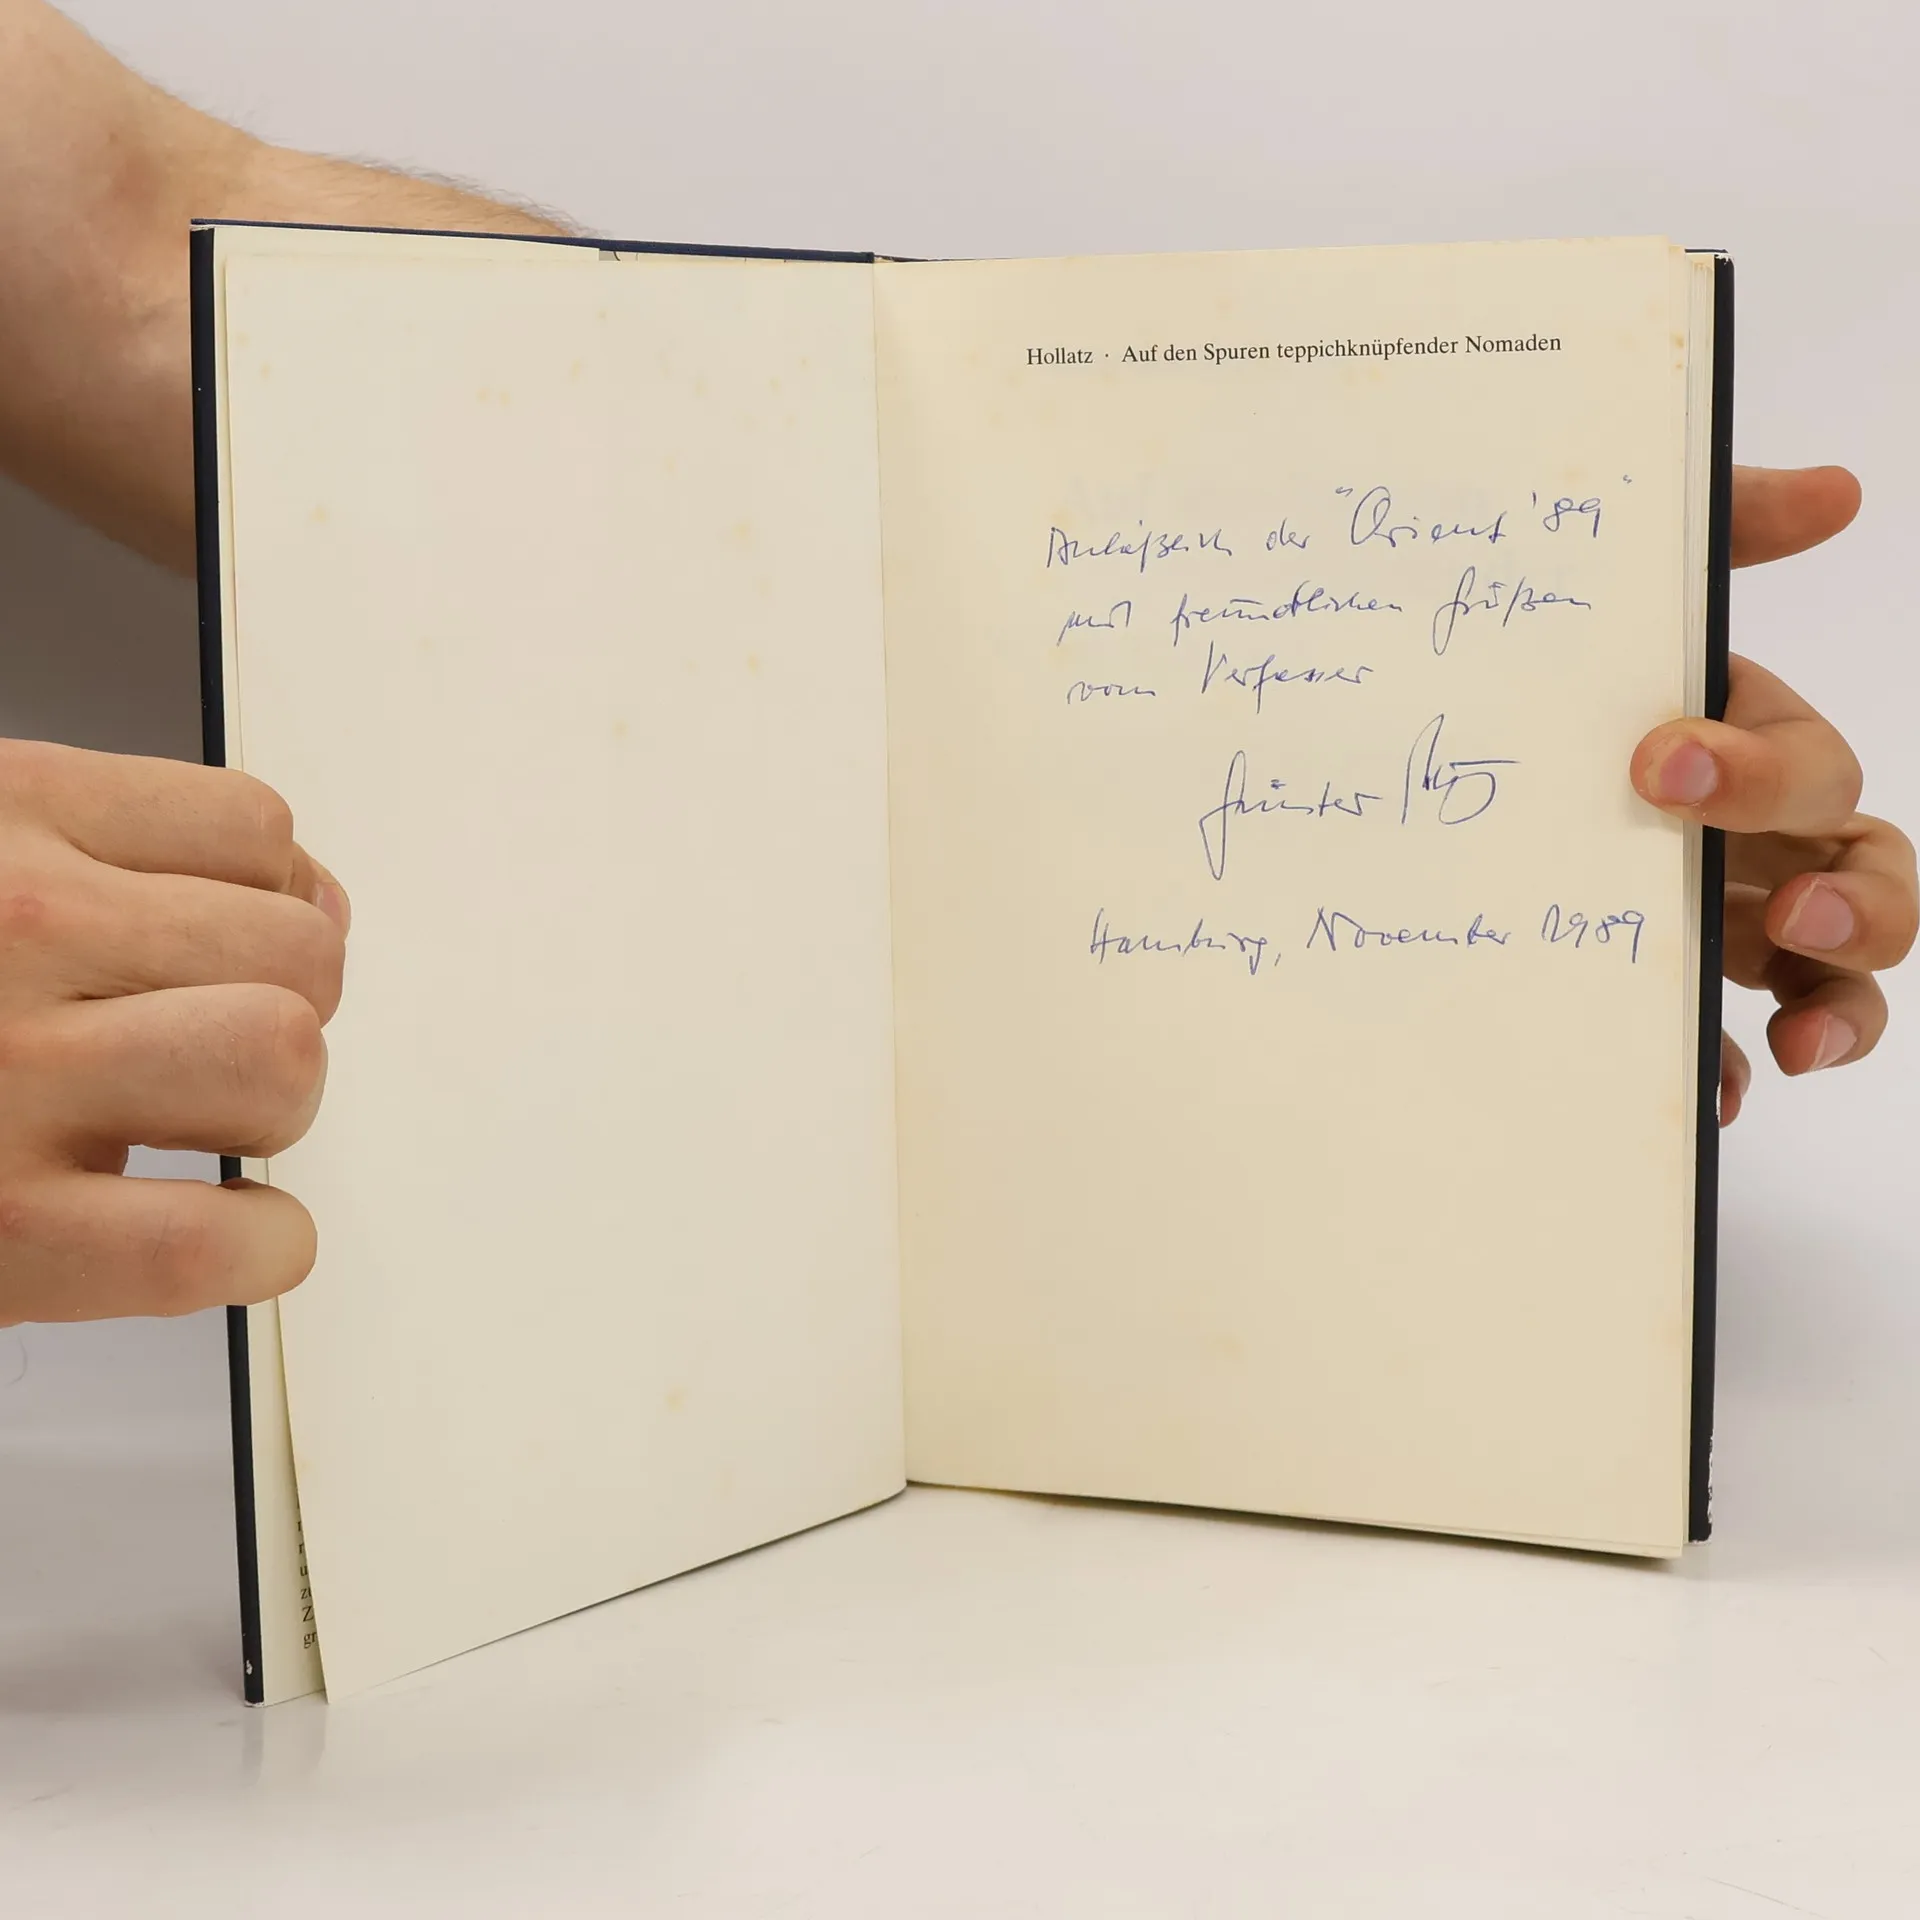 Hollatz · Auf den Spuren teppichknüpfender Nomaden
Anläßlich der "Orient '89"
mit freundlichen Grüßen
vom Verfasser
Günter
Hamburg, November 1989